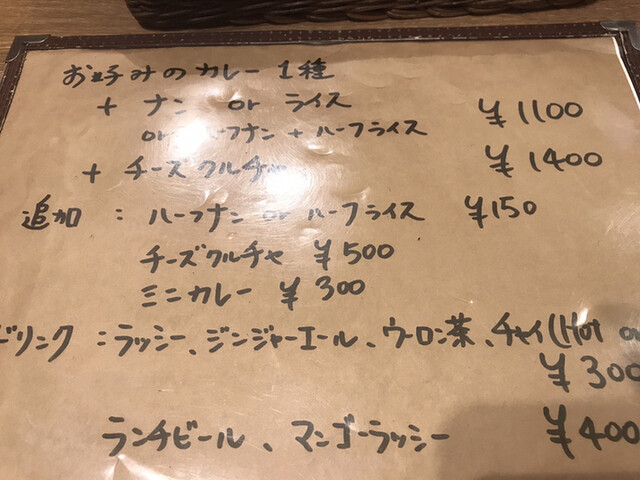 お好みのカレー 1種
+ ナン or ライス ¥1100
or ハーフナン + ハーフライス
+ チーズクルチャ ¥1400
追加 : ハーフナン or ハーフライス ¥150
チーズクルチャ ¥500
ミニカレー ¥300
ドリンク : ラッシー、ジンジャーエール、ウーロン茶、チャイ(Hot
¥300
ランチビール、マンゴーラッシー ¥400